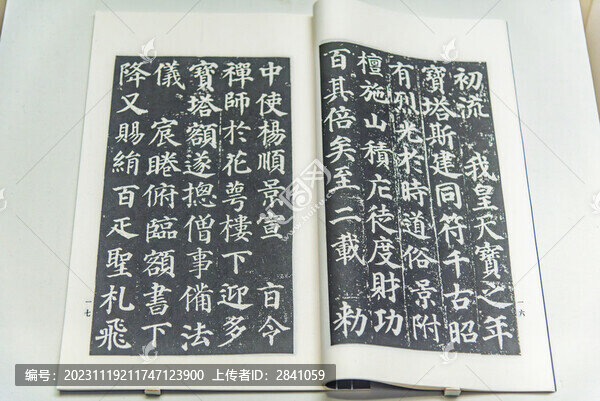 初流 我皇天寶之年
寶塔斯建同符千古昭
有烈光於時道俗景附
檀施山積庀徒度財功
百其倍矣至二載 勑
一六
中使楊順景宣 旨令
禪師於花萼樓下迎多
寶塔額遂摠僧事備法
儀 宸睠俯臨額書下
降又賜絹百疋聖札飛
一七
编号：20231119211747123900 上传者ID：2841059